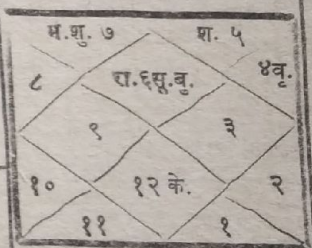 मं.शु. ७ श. ५
८ रा.६सू.बु. ४वृ.
९ ३
१० १२ के. २
११ १